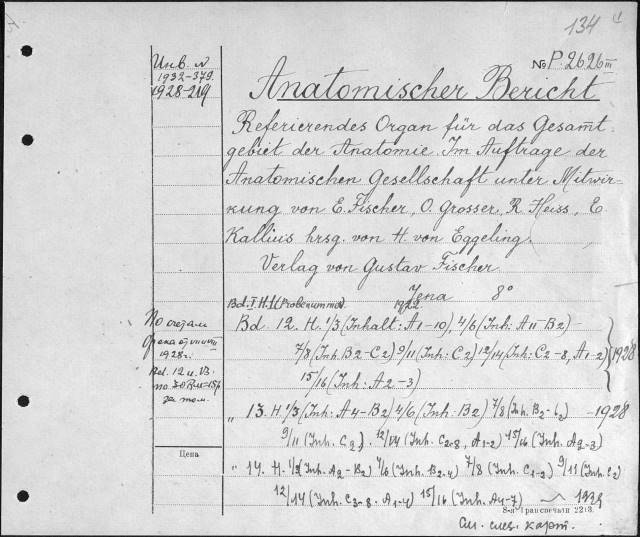 134
№ P. 2626 III
Инв. №
1932-379.
1928-219
Anatomischer Bericht
Referierendes Organ für das Gesamt-
gebiet der Anatomie. Im Auftrage der
Anatomischen Gesellschaft unter Mitwir-
kung von E. Fischer, O. Grosser, R. Heiss, E.
Kallius hrsg. von H. von Eggeling.
Verlag von Gustav Fischer
Jena 8°
Bd. I. H.1 (Probenummer) 1922
По счетам
1928 г.
Bd. 12 и 13
за том.
Bd. 12. H. 1/3 (Inhalt: A1-10), 4/6 (Inh: A11-B2)-
7/8 (Inh. B2-C2) 9/11 (Inh: C2) 12/14 (Inh: C2-8, A1-2)
15/16 (Inh: A2-3)
1928
„ 13. H. 1/3 (Inh: A4-B2) 4/6 (Inh: B2) 7/8 (Inh. B2-C2) -1928
9/11 (Inh. C2), 12/14 (Inh. C2-8, A1-2) 15/16 (Inh. A2-3)
Цена
„ 14. H. 1/3 (Inh. A2-B2) 4/6 (Inh. B2-4) 7/8 (Inh. C1-2) 9/11 (Inh. C2)
12/14 (Inh. C3-8. A1-4) 15/16 (Inh. A4-7) 1929
8-я Транспечати 2213.
См. след. карт.